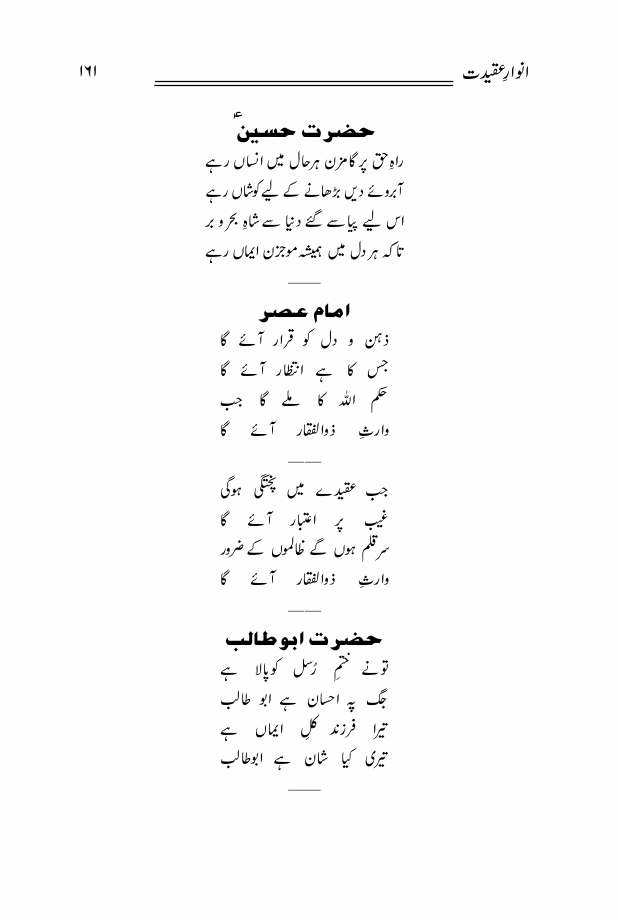 انوارِ عقیدت ۱۶۱
حضرت حسینؑ
راہِ حق پر گامزن ہر حال میں انساں رہے
آبروئے دیں بڑھانے کے لیے کوشاں رہے
اس لیے پیاسے گئے دنیا سے شاہِ بحر و بر
تا کہ ہر دل میں ہمیشہ موجزن ایماں رہے
امام عصر
ذہن و دل کو قرار آئے گا
جس کا ہے انتظار آئے گا
حکم اللہ کا ملے گا جب
وارثِ ذوالفقار آئے گا
جب عقیدے میں پختگی ہوگی
غیب پر اعتبار آئے گا
سر قلم ہوں گے ظالموں کے ضرور
وارثِ ذوالفقار آئے گا
حضرت ابوطالب
تونے ختمِ رُسل کو پالا ہے
جگ پہ احسان ہے ابو طالب
تیرا فرزند کلِ ایماں ہے
تیری کیا شان ہے ابوطالب